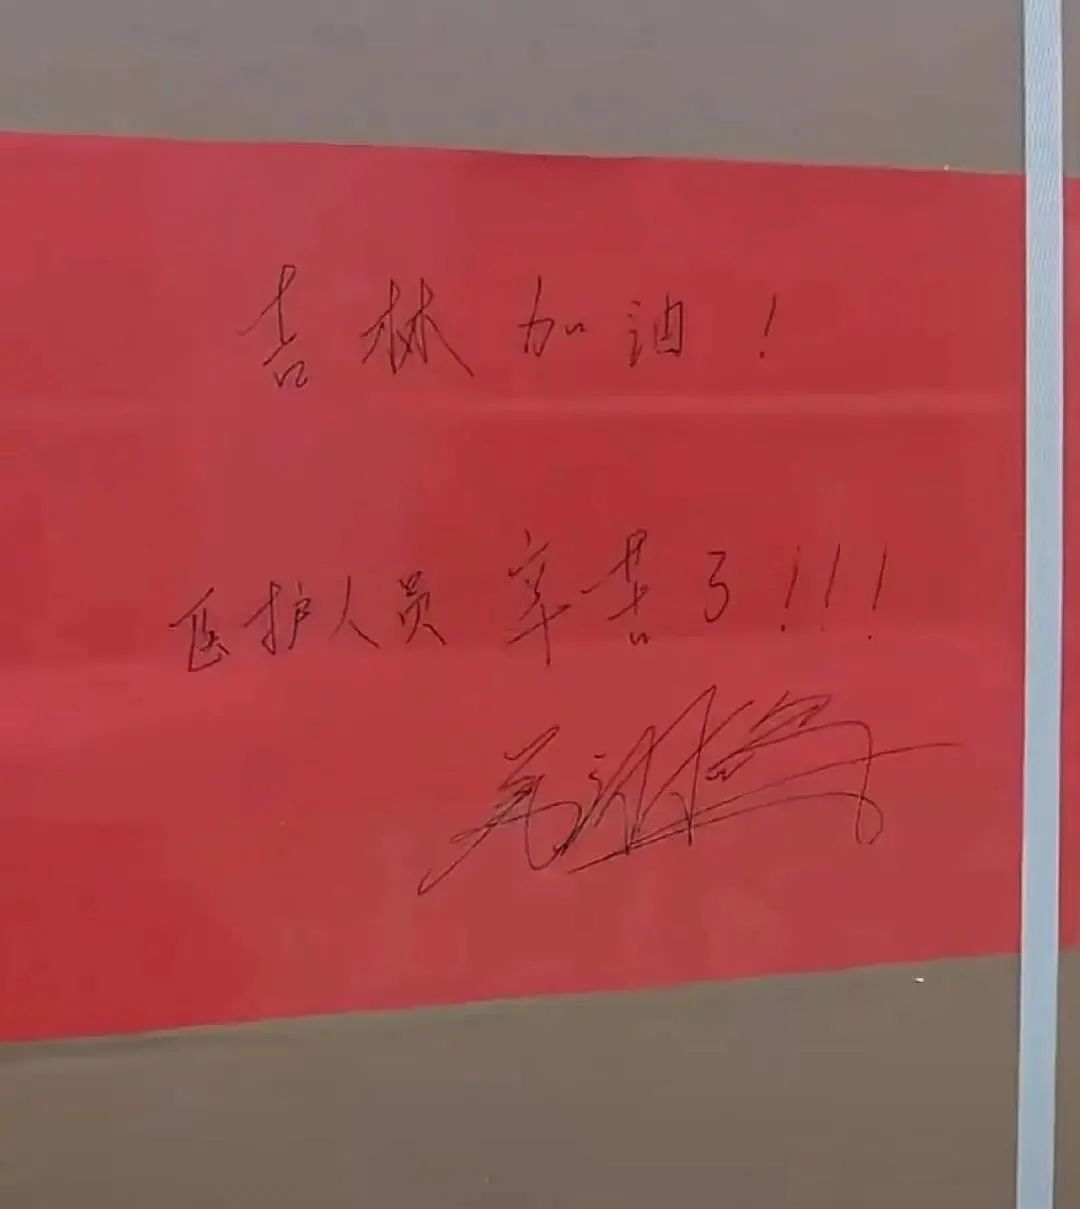 吉林加油！
医护人员辛苦了！！！